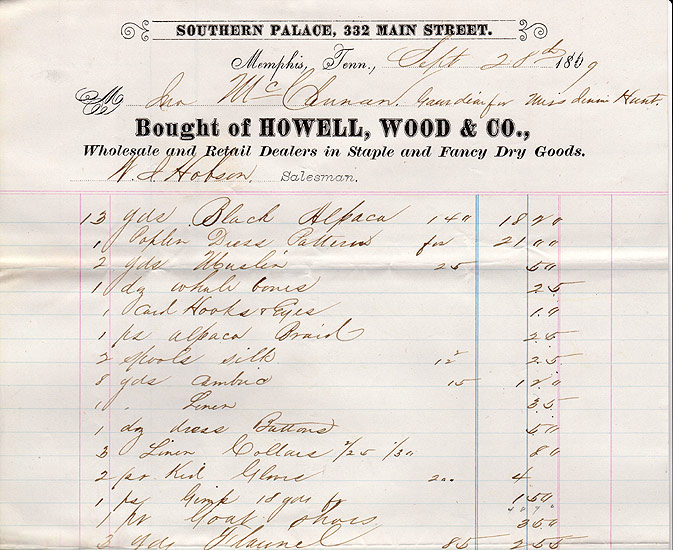 SOUTHERN PALACE, 332 MAIN STREET.
Memphis, Tenn., Sept 28th 1869
M Jno McClunan. Gaurdian for Miss Jennie Hunt.
Bought of HOWELL, WOOD & CO.,
Wholesale and Retail Dealers in Staple and Fancy Dry Goods.
W. J. Hobson, Salesman.
13 yds Black Alpaca 140 18 20
1 Poplin Dress Pattern for 21 00
2 yds Muslin 25 50
1 dz whale bones 25
1 Card Hooks & Eyes 10
1 ps alpaca Braid 25
2 spools silk 12 25
8 yds Cambric 15 1 20
1 " Linen 35
1 dz dress Buttons 50
3 Linen Collars 2/25 1/30 80
2 pr Kid Gloves 200 4
1 ps Gimp 18 yds for 1 50
1 pr Goat shoes 3 50
3 yds Flannel 85 2 55